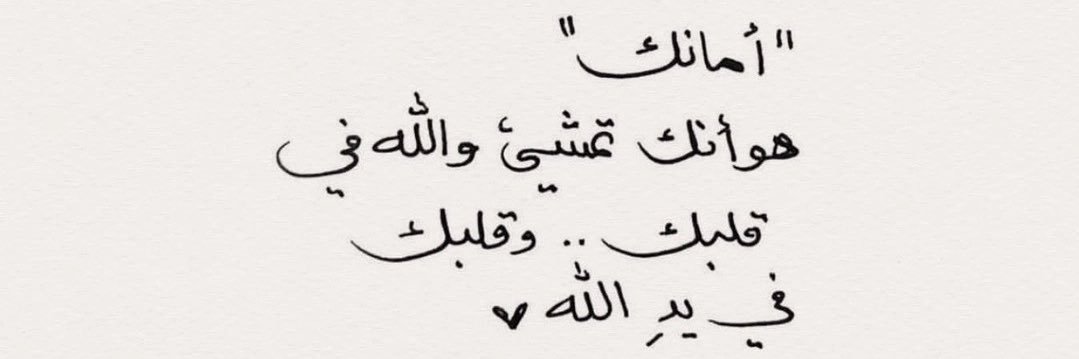 "أمانك"
هو أنك تمشيئ والله في
قلبك .. وقلبك
في يدِ الله ♥